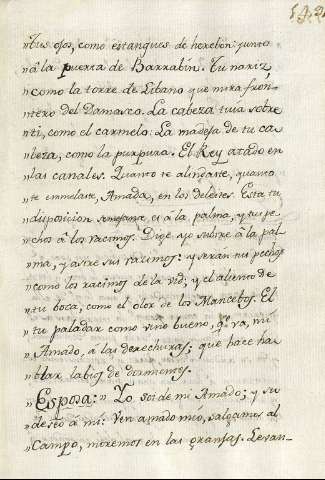 "tus ojos, como estanques de hesebon: junto
"â la puerta de Barrabin. Tu nariz
"como la torre de Libano que mira fron-
"tero del Damasco. La cabeza tuia sobre
"ti, como el carmelo. La madeja de tu ca-
"beza, como la purpura. El Rey atado en
"las canales. Quanto te alindaste, quanto
"te enmelaste, Amada, en los deleites. Esta tu
"disposicion semejante es â la palma, y tus pe-
"chos â los racimos. Dige: yo subire â la pal-
"ma, y asire sus racimos: y seran tus pechos
"como los racimos de la vid; y el aliento de
"tu boca, como el olor de los Manzanos. El
"tu paladar como vino bueno, q.e va, mi
"Amado, â las derechuras; que hace ha-
"blar labios de dormientes.
"Esposa: "Yo soi de mi Amado; y su
"deseo â mi. Ven amado mio, salgamos al
"Campo, moremos en las granjas. Levan-